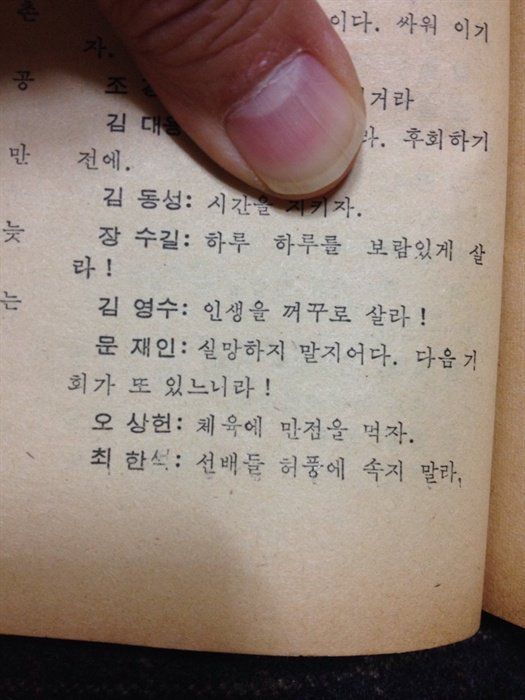 촌
이다. 싸워 이기
자.
공
조
거라
김 대
후회하기
만
전에.
김 동성: 시간을 지키자.
늦
장 수길: 하루 하루를 보람있게 살
라!
는
김 영수: 인생을 꺼꾸로 살라!
문 재인: 실망하지 말지어다. 다음 기
회가 또 있느니라!
오 상헌: 체육에 만점을 먹자.
최 한석: 선배들 허풍에 속지 말라,